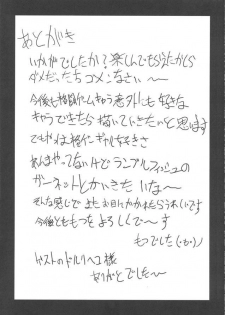 あとがき
いかがでしたか？楽しんでもらえたかしら
ダメだったらゴメンなさい〜
今後も格闘ゲームキャラ意外にも好きな
キャラできたら描いていきたいと思います
でもやっぱ格ゲーギャルも好きさ
あんまやってないけどランブルフィッシュの
ガーネットとかかきたいな〜
そんな感じでまたお目にかかれたらうれしいです
今後とももつをよろしくで〜す
もつでした
ゲストのドルリヘコ様
ありがとでした〜